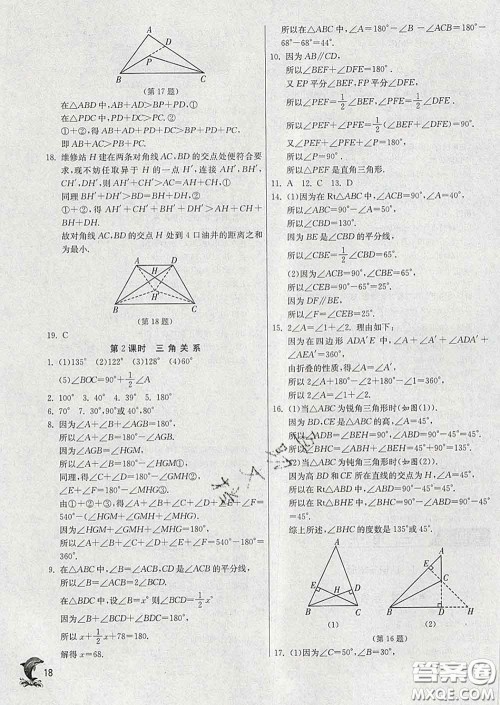 A
D
P
B
C
(第17题)
在△ABD中,AB+AD>BP+PD,①
在△PDC中,PD+DC>PC. ②
①+②,得AB+AD+PD+DC>BP+PD+PC.
所以AB+AC>BP+PC.
18. 维修站H建在两条对角线AC,BD的交点处便符合要
求,现不妨任取异于H的一点H′,连接AH′,BH′,
CH′,DH′,则AH′+CH′>AC=AH+CH①.
同理BH′+DH′>BD=BH+DH②.
①+②,得AH′+BH′+CH′+DH′>AH+CH+
BH+DH.
故对角线AC,BD的交点H处到4口油井的距离之和
为最小.
A
D
H′
H
B
C
(第18题)
19. C
第2课时 三角关系
1. (1)135° (2)122° (3)128° (4)60°
(5)∠BOC=90°+1/2∠A
2. 100° 3. 40° 4. 90° 5. 40°
6. 70° 7. 30°,90°或40°,80°
8. 因为∠A+∠B+∠AGB=180°,
所以∠A+∠B=180°-∠AGB.
因为∠AGB=∠HGM,
所以∠A+∠B=180°-∠HGM①,
同理可得∠C+∠D=180°-∠GMH②,
∠E+∠F=180°-∠MHG③.
由①+②+③,得
∠A+∠B+∠C+∠D+∠E+∠F=540°-∠HGM-
∠GMH-∠MHG.
因为∠HGM+∠GMH+∠MHG=180°,
所以∠A+∠B+∠C+∠D+∠E+∠F=540°-180°=
360°.
9. 在△ABC中,∠B=∠A,CD是∠ACB的平分线,
所以∠BCD=1/2∠ACB.
在△BDC中,设∠B=x°,则∠BCD=1/2x°
因为∠B+∠BDC+∠BCD=180°,
所以x+1/2x+78=180.
解得x=68.
18
所以在△ABC中,∠A=180°-∠B-∠ACB=180°-
68°-68°=44°.
10. 因为AB∥CD,
所以∠BEF+∠DFE=180°.
又EP平分∠BEF,FP平分∠DFE,
所以∠PEF=1/2∠BEF,∠PFE=1/2∠DFE.
所以∠PEF+∠PFE=1/2(∠BEF+∠DFE)=90°.
又∠PEF+∠PFE+∠P=180°,
所以∠P=90°.
所以△PEF是直角三角形.
11. A 12. C 13. D
14. (1)因为在Rt△ABC中,∠ACB=90°,∠A=40°,
所以∠ABC=90°-∠A=50°.
所以∠CBD=130°.
因为BE是∠CBD的平分线,
所以∠CBE=1/2∠CBD=65°.
(2)因为∠ACB=90°,∠CBE=65°,
所以∠CEB=90°-65°=25°.
因为DF∥BE,
所以∠F=∠CEB=25°.
15. 2∠A=∠1+∠2. 理由如下:
因为在四边形ADA′E中,∠A+∠A′+∠ADA′+
∠AEA′=360°,
由折叠的性质,得∠A=∠A′,
所以2∠A+180°-∠2+180°-∠1=360°.
所以2∠A=∠1+∠2.
16. (1)当△ABC为锐角三角形时(如图(1)).
因为BD,CE是△ABC的高,∠A=45°,
所以∠ADB=∠BEH=90°.
(2)
因为高BD和CE所在直线的交点为H,
综上所述,∠BHC的度数是135°或45°.
A
E
D
H
B
C
(1)
A
E
C
B
D
H
(2)
(第16题)
17. (1)因为∠C=50°,∠B=30°,
答案圈
MXQE.COM